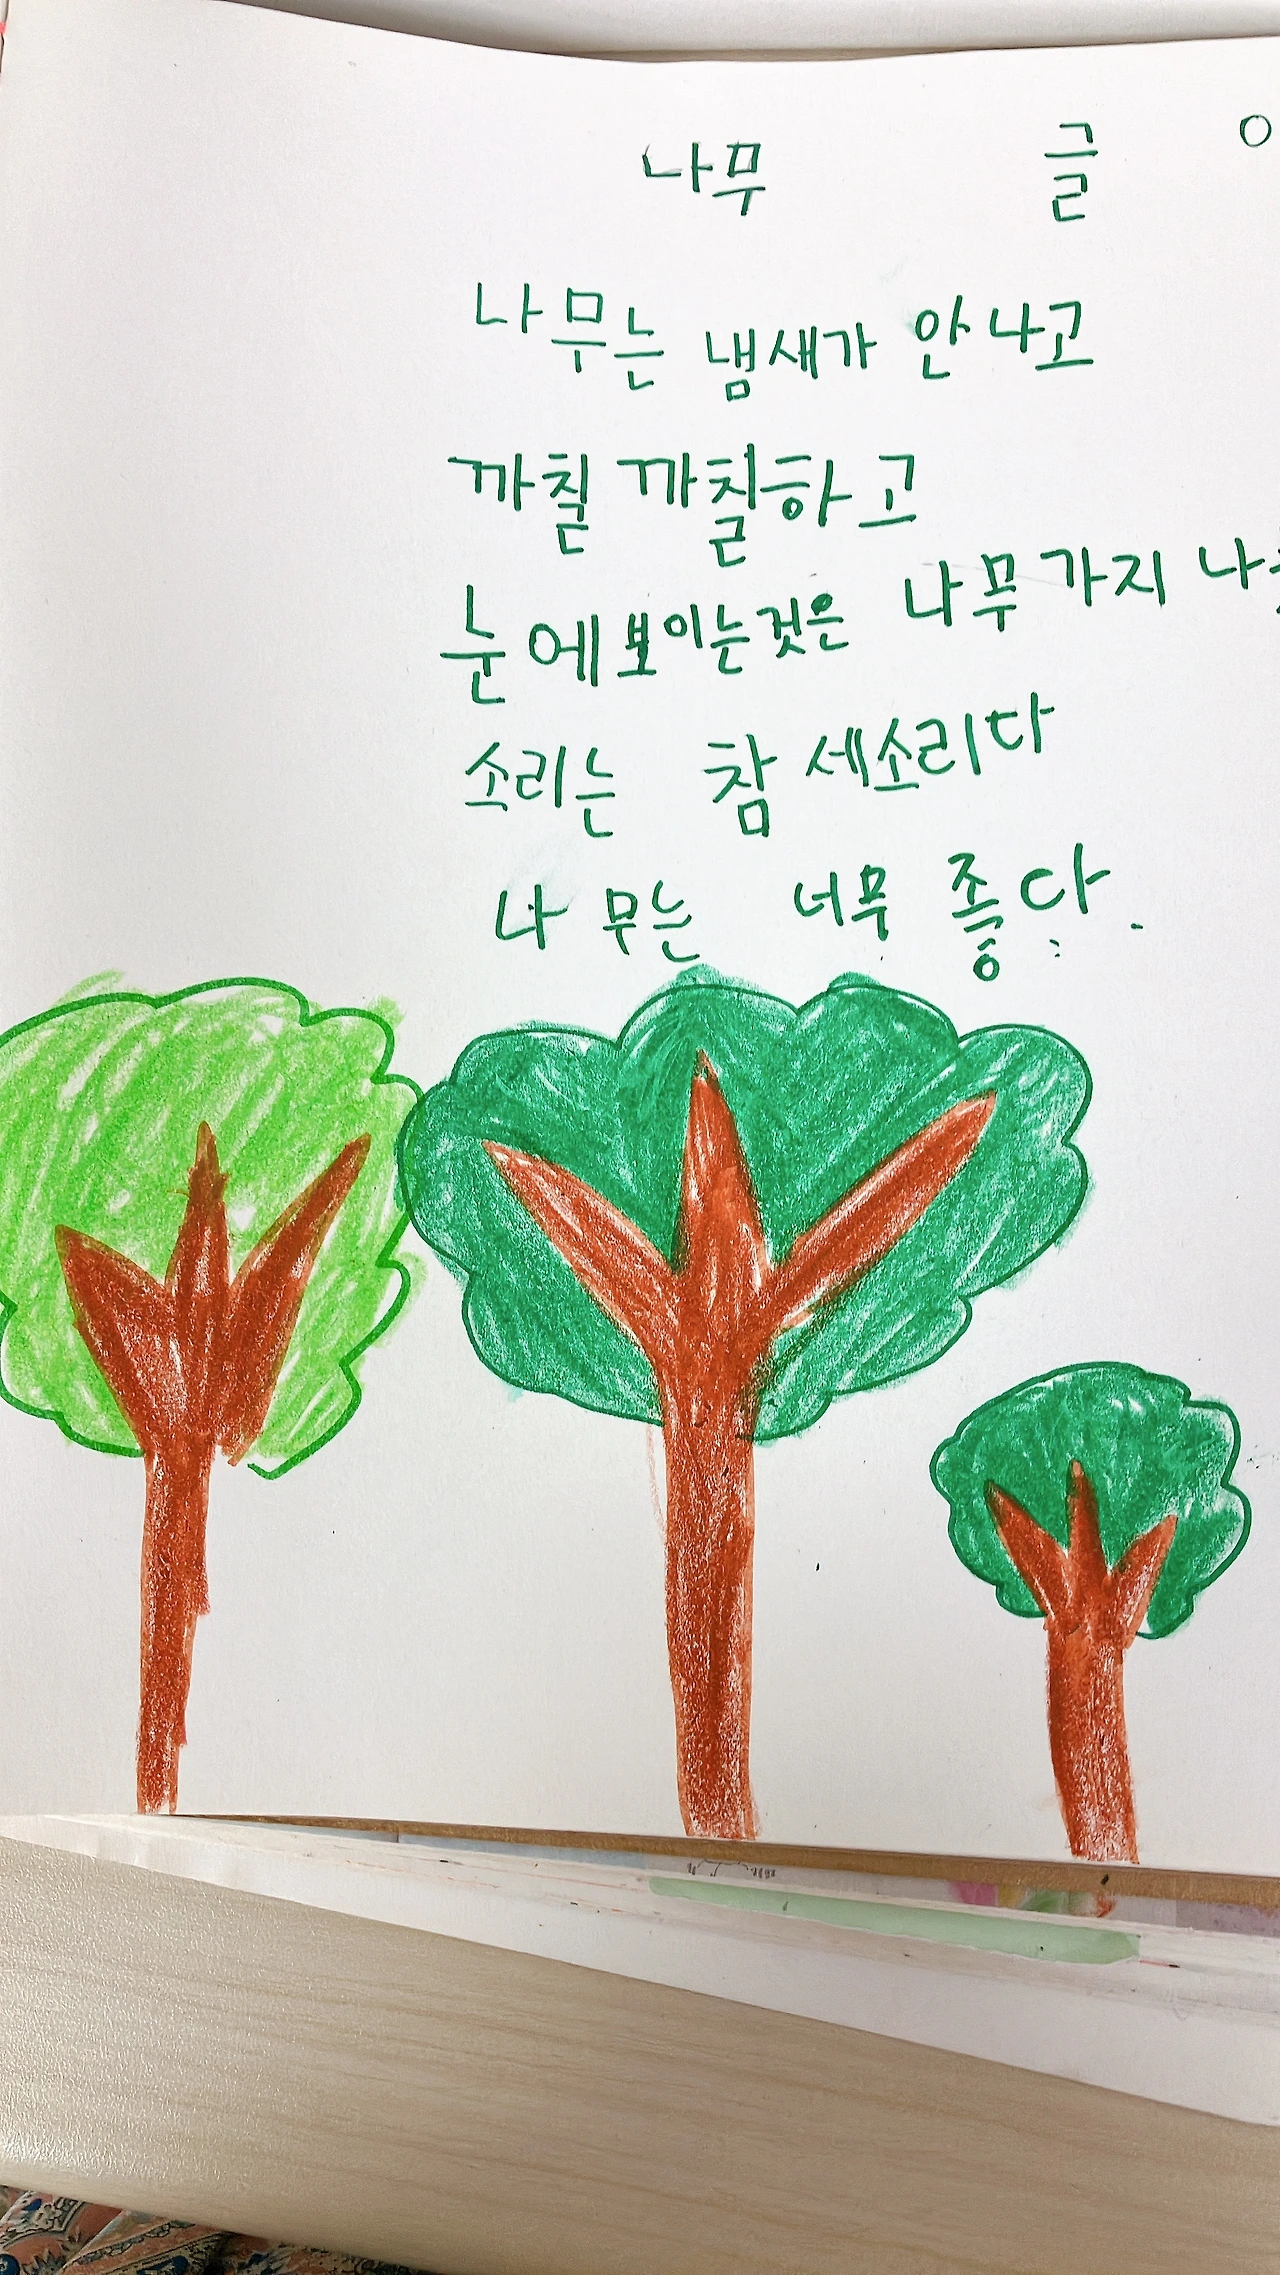 나무 글
나무는 냄새가 안나고
까칠 까칠하고
눈에보이는것은 나무가지
소리는 참 세소리다
나무는 너무 좋다.